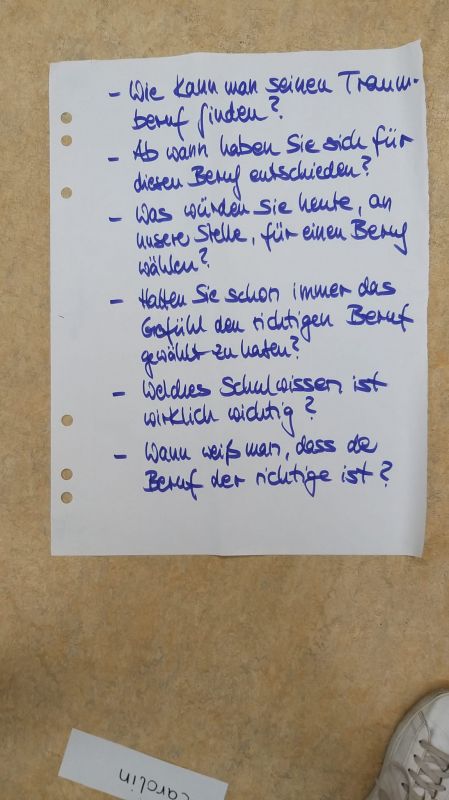 - Wie kann man seinen Traum-
beruf finden?
- Ab wann haben Sie sich für
diesen Beruf entschieden?
- Was würden Sie heute, an
unsere Stelle, für einen Beruf
wählen?
- Hatten Sie schon immer das
Gefühl den richtigen Beruf
gewählt zu haben?
- Welches Schulwissen ist
wirklich wichtig?
- Wann weiß man, dass de
Beruf der richtige ist?
carolin